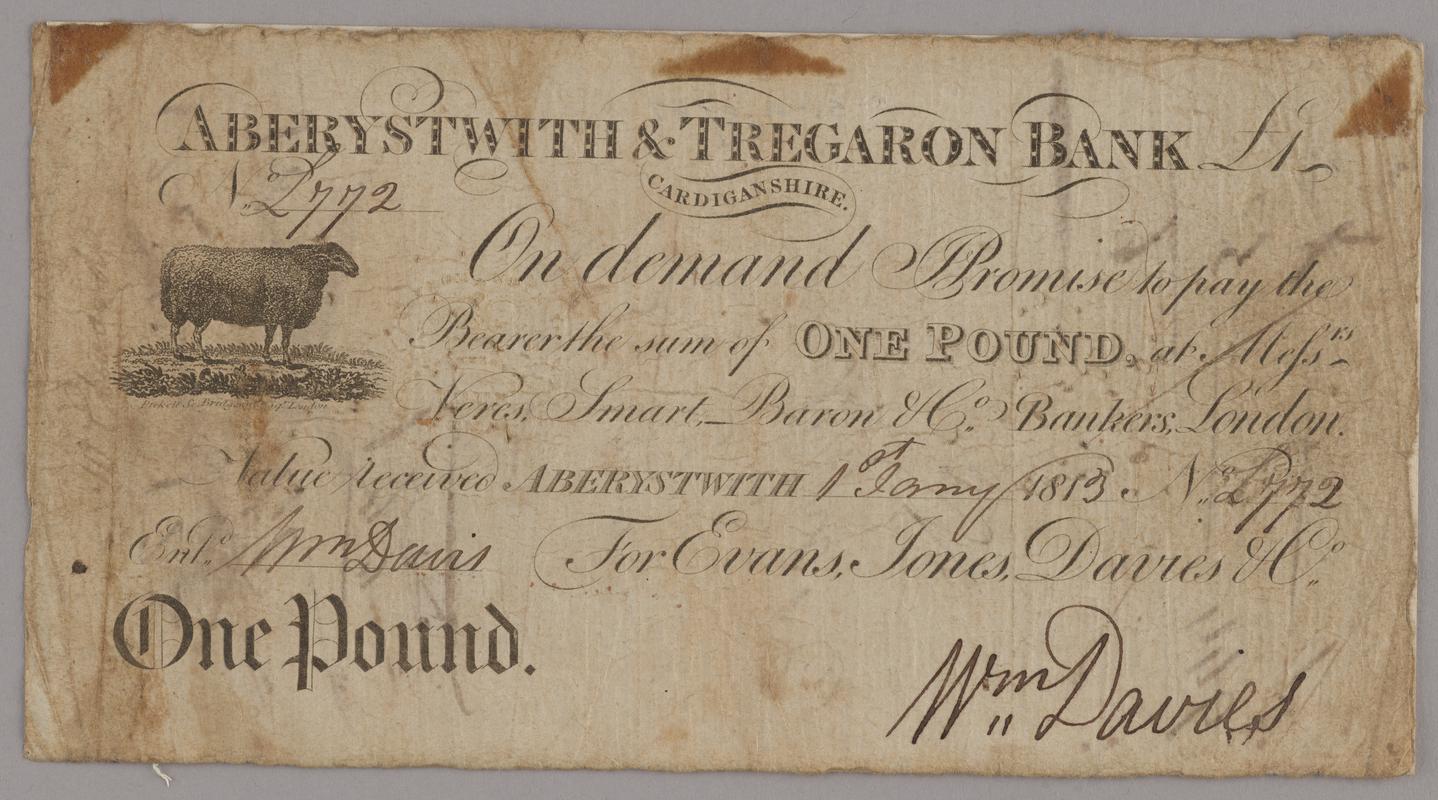 ABERYSTWITH & TREGARON BANK £1
CARDIGANSHIRE.
No. L772
On demand I Promise to pay the
Bearer the sum of ONE POUND, at Messrs
Veres, Smart, Baron & Co. Bankers, London.
Value received ABERYSTWITH 1st Jany 1813. No. L772
Entd. Wm Davis For Evans, Jones, Davies & Co.
One Pound.
Wm Davies